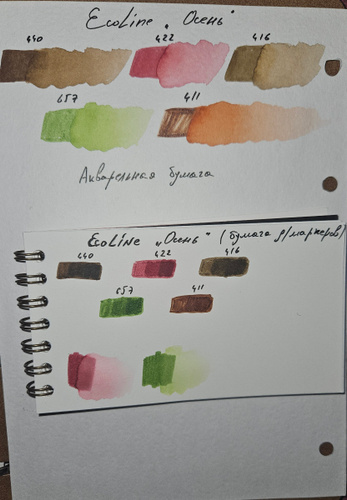 EcoLine „Осень"
440 422 416
657 411
Акварельная бумага
EcoLine „Осень" (бумага д/маркеров)
440 422 416
657 411